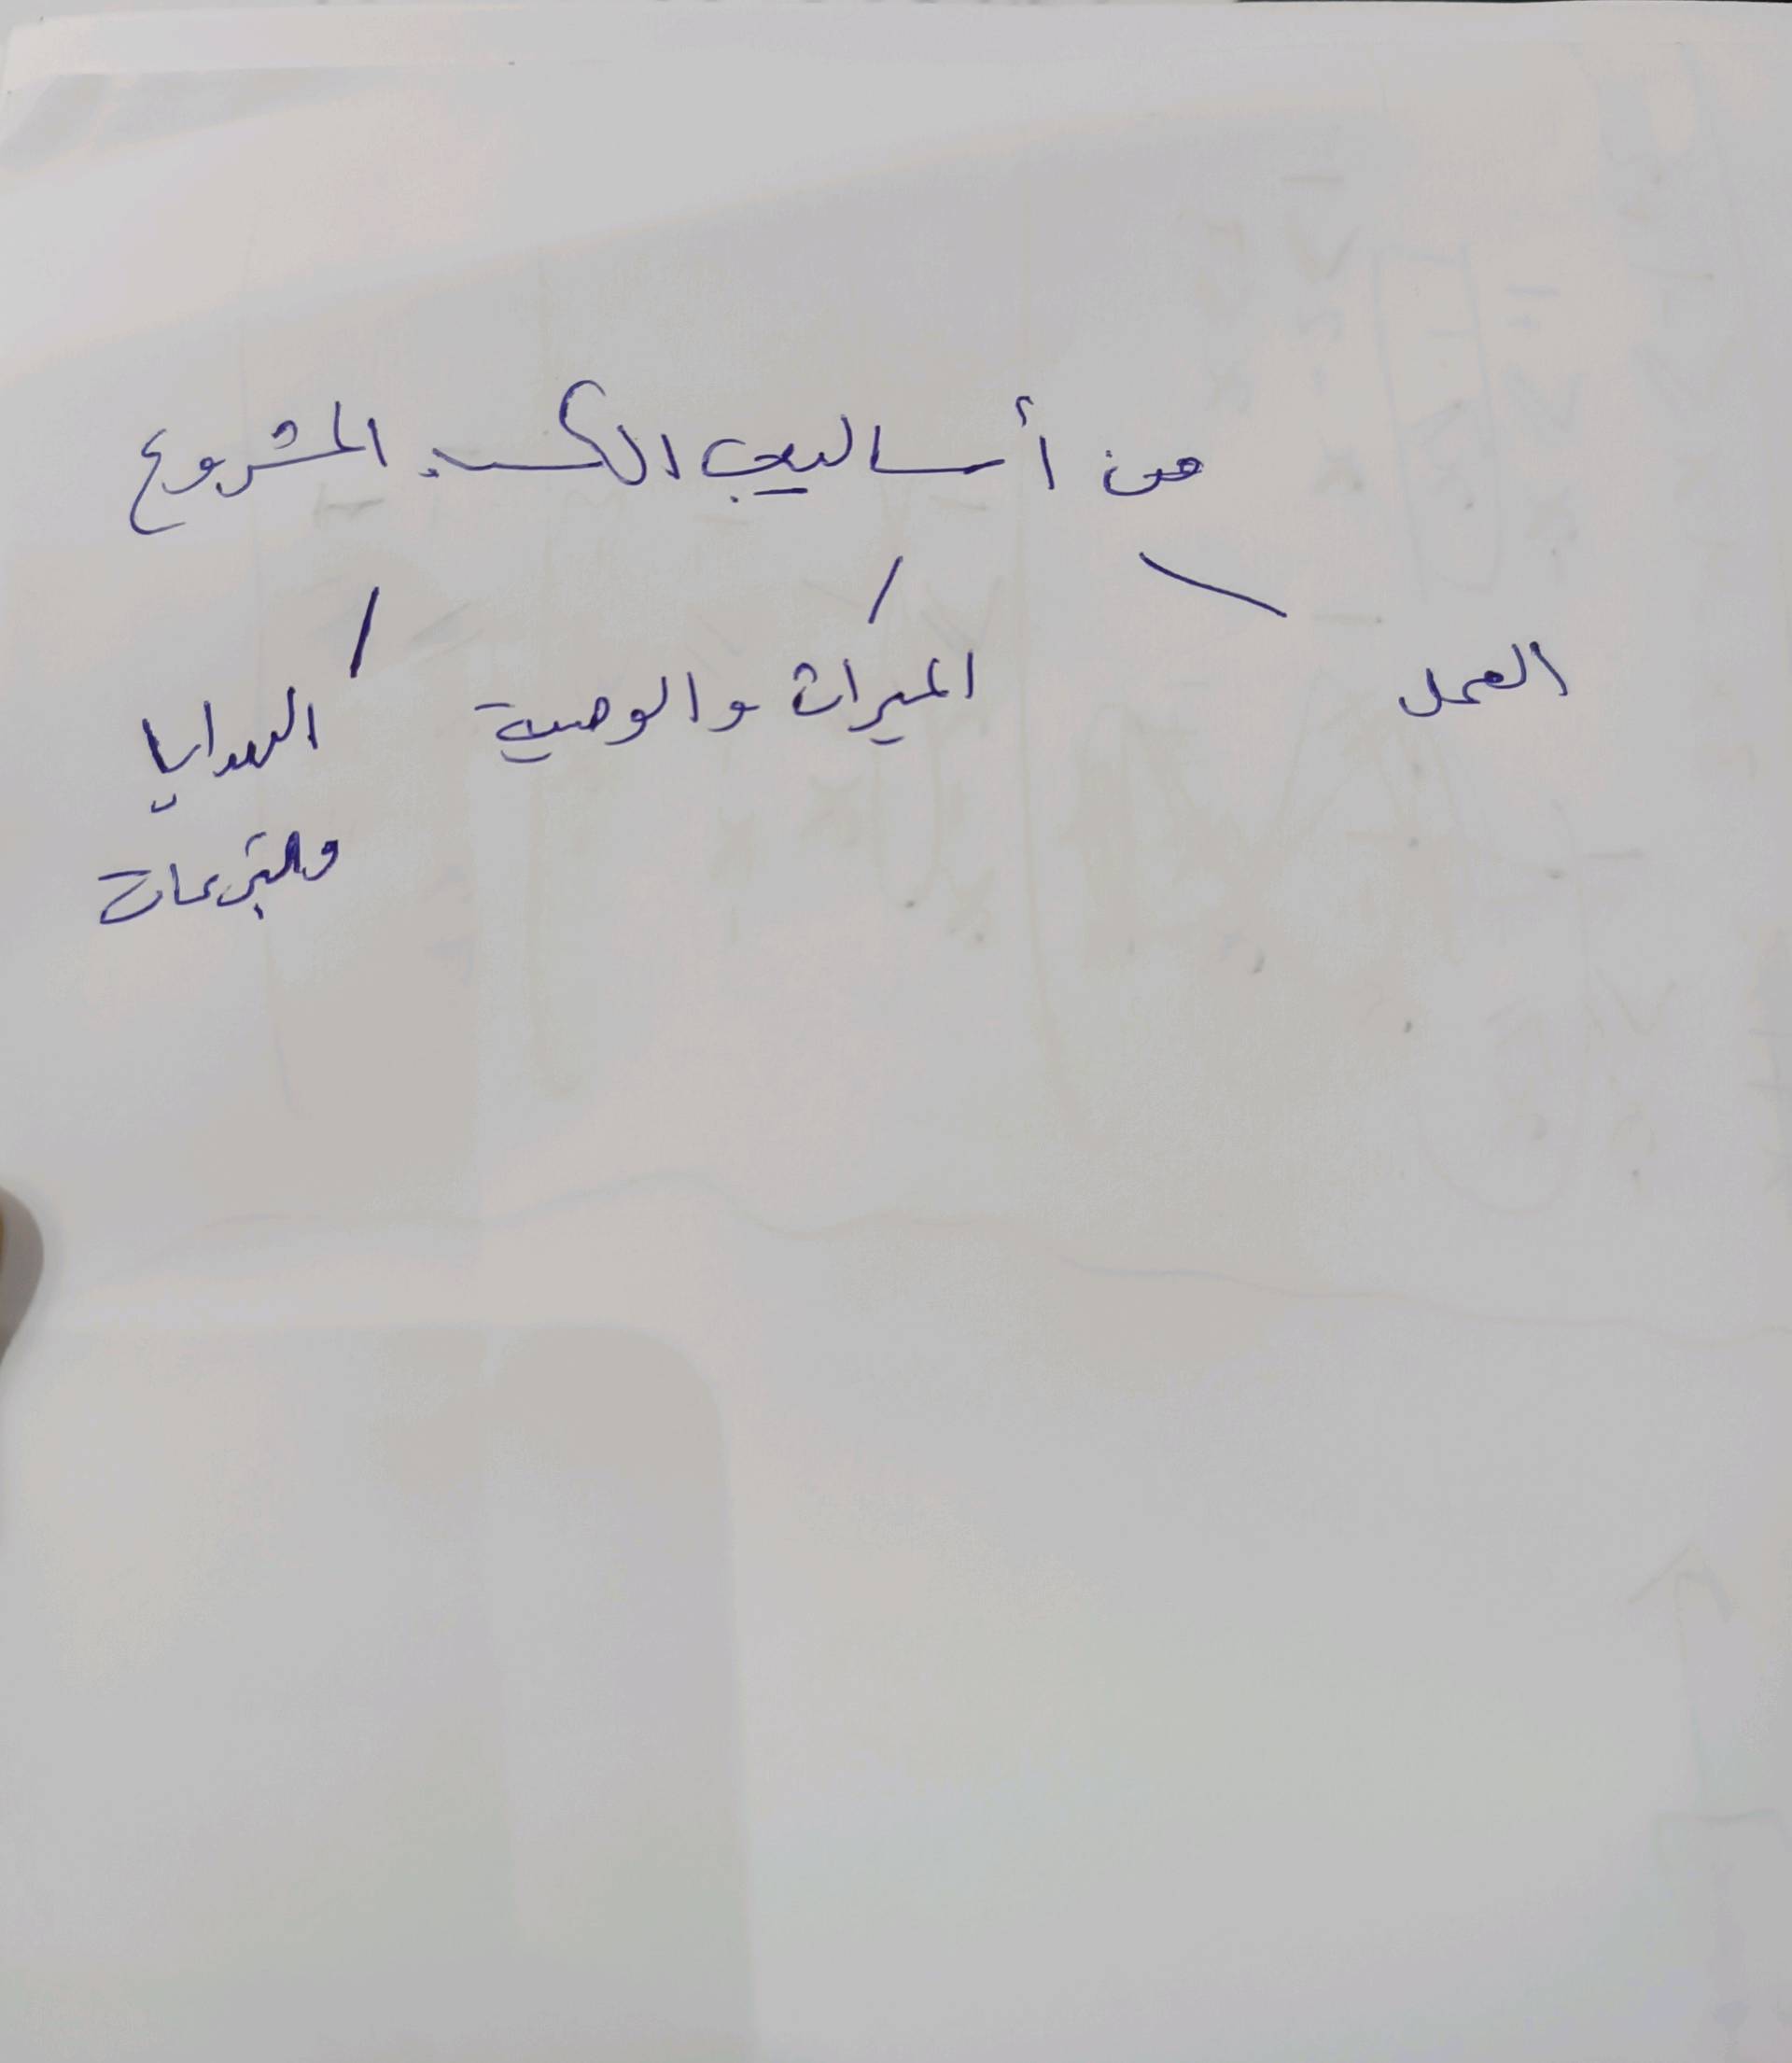 من أساليب الكسب المشروع
العمل
الميراث والوصية
الهدايا
والتبرعات